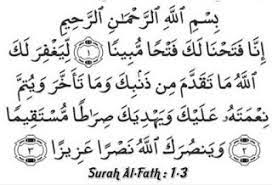 بِسْمِ اللَّهِ الرَّحْمَٰنِ الرَّحِيمِ
إِنَّا فَتَحْنَا لَكَ فَتْحًا مُبِينًا ١ لِيَغْفِرَ لَكَ
اللَّهُ مَا تَقَدَّمَ مِن ذَنبِكَ وَمَا تَأَخَّرَ وَيُتِمَّ
نِعْمَتَهُ عَلَيْكَ وَيَهْدِيَكَ صِرَاطًا مُسْتَقِيمًا
٢ وَيَنصُرَكَ اللَّهُ نَصْرًا عَزِيزًا ٣
Surah Al-Fath : 1-3